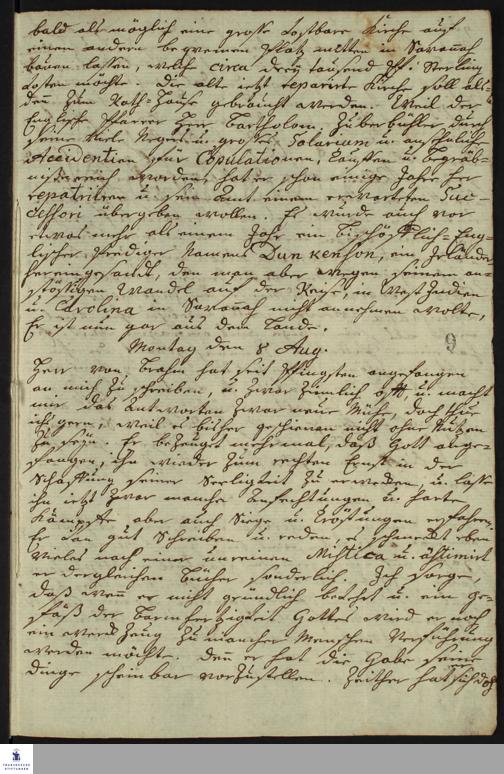 bald als möglich eine grosse kostbare Kirche auf
einem andern bequemen Platz mitten in Savannah
bauen lassen, welche circa drey tausend Pf. Sterling
kosten möchte. Die alte jetzt reparirte Kirche soll als
den zum Rath-Hause gebraucht werden. Weil der
Englische Pfarrer Herr Bartholom. Zuberbühler durch
seine viele Neger u. grosses Salarium u. ansehnliche
Accidentien für Copulationen, Taufen u. Begräb-
nisse reich worden, hat er schon einige Jahre her
repatriiren u. sein Amt einem erwarteten Suc-
cessori übergeben wollen. Es wurde auch vor
etwas mehr als einem Jahr ein bischöfflich-Eng-
lischer Prediger Namens Dunkenson, ein Irländer
hereingesandt, den man aber wegen seinem an-
stößigen Wandel auf der Reise, in West Indien
u. Carolina in Savannah nicht annehmen wolte,
Er ist nun gar aus dem Lande.
Montag den 8 Aug.
9
Herr von Brahm hat seit Pfingsten angefangen
an mich zu schreiben, u. zwar ziemlich oft u. macht
mir das Antworten zwar neue Mühe, doch thue
ichs gern, weil es bisher geschienen nicht ohne Nutzen
zu seyn. Er bezeuget mehrmal, daß Gott ange-
fangen, ihn wieder zum rechten Ernst in der
Schaffung seiner Seeligkeit zu erwecken, u. lasse
ihn jetzt zwar manche Anfechtungen u. harte
Kämpfe aber auch Siege u. Tröstungen erfahren.
Er kan gut schreiben u. reden, es schmeckt eben
vieles nach einer unreinen Mistica u. æstimirt
er dergleichen Bücher sonderlich. Ich sorge,
daß wenn er nicht gründlich bekehrt u. ein ge-
fäß der Barmherzigkeit Gottes wird er noch
ein Werckzeug zu mancher Menschen Verführung
werden möchte. denn er hat die Gabe seine
dinge scheinbar vorzustellen. Zeither hat sich doch
FRANCKESCHE
STIFTUNGEN